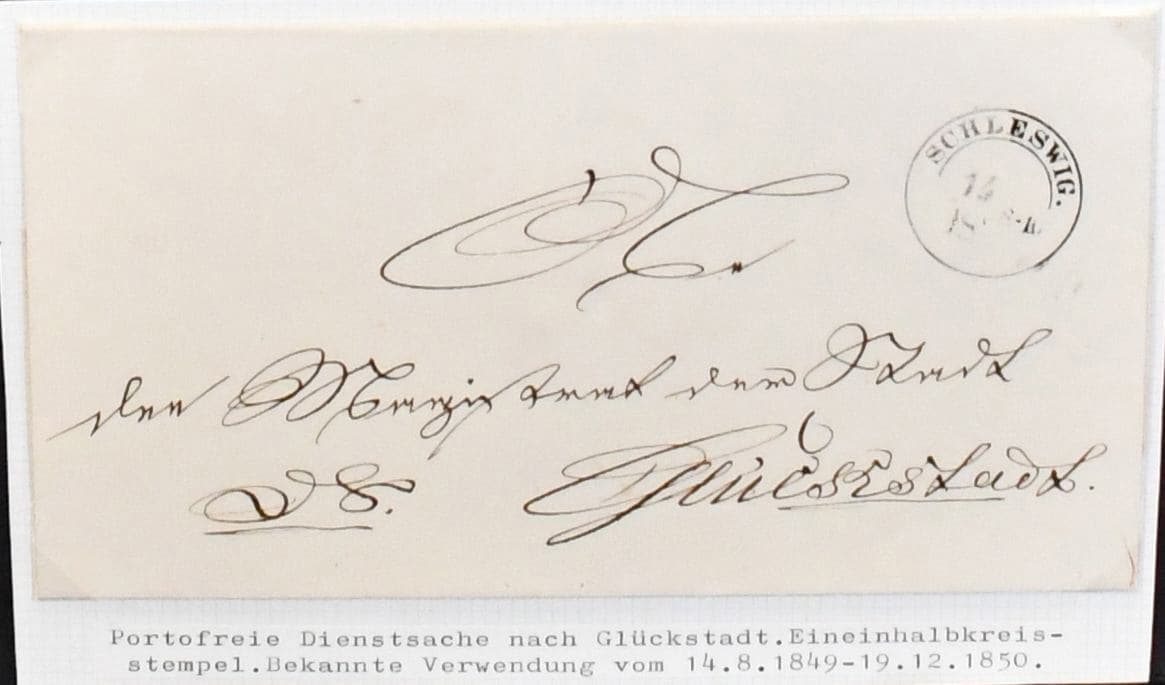 SCHLESWIG.
14
An
den Magistrat der Stadt
DS. Glückstadt.
Portofreie Dienstsache nach Glückstadt.Eineinhalbkreis-
stempel.Bekannte Verwendung vom 14.8.1849-19.12.1850.